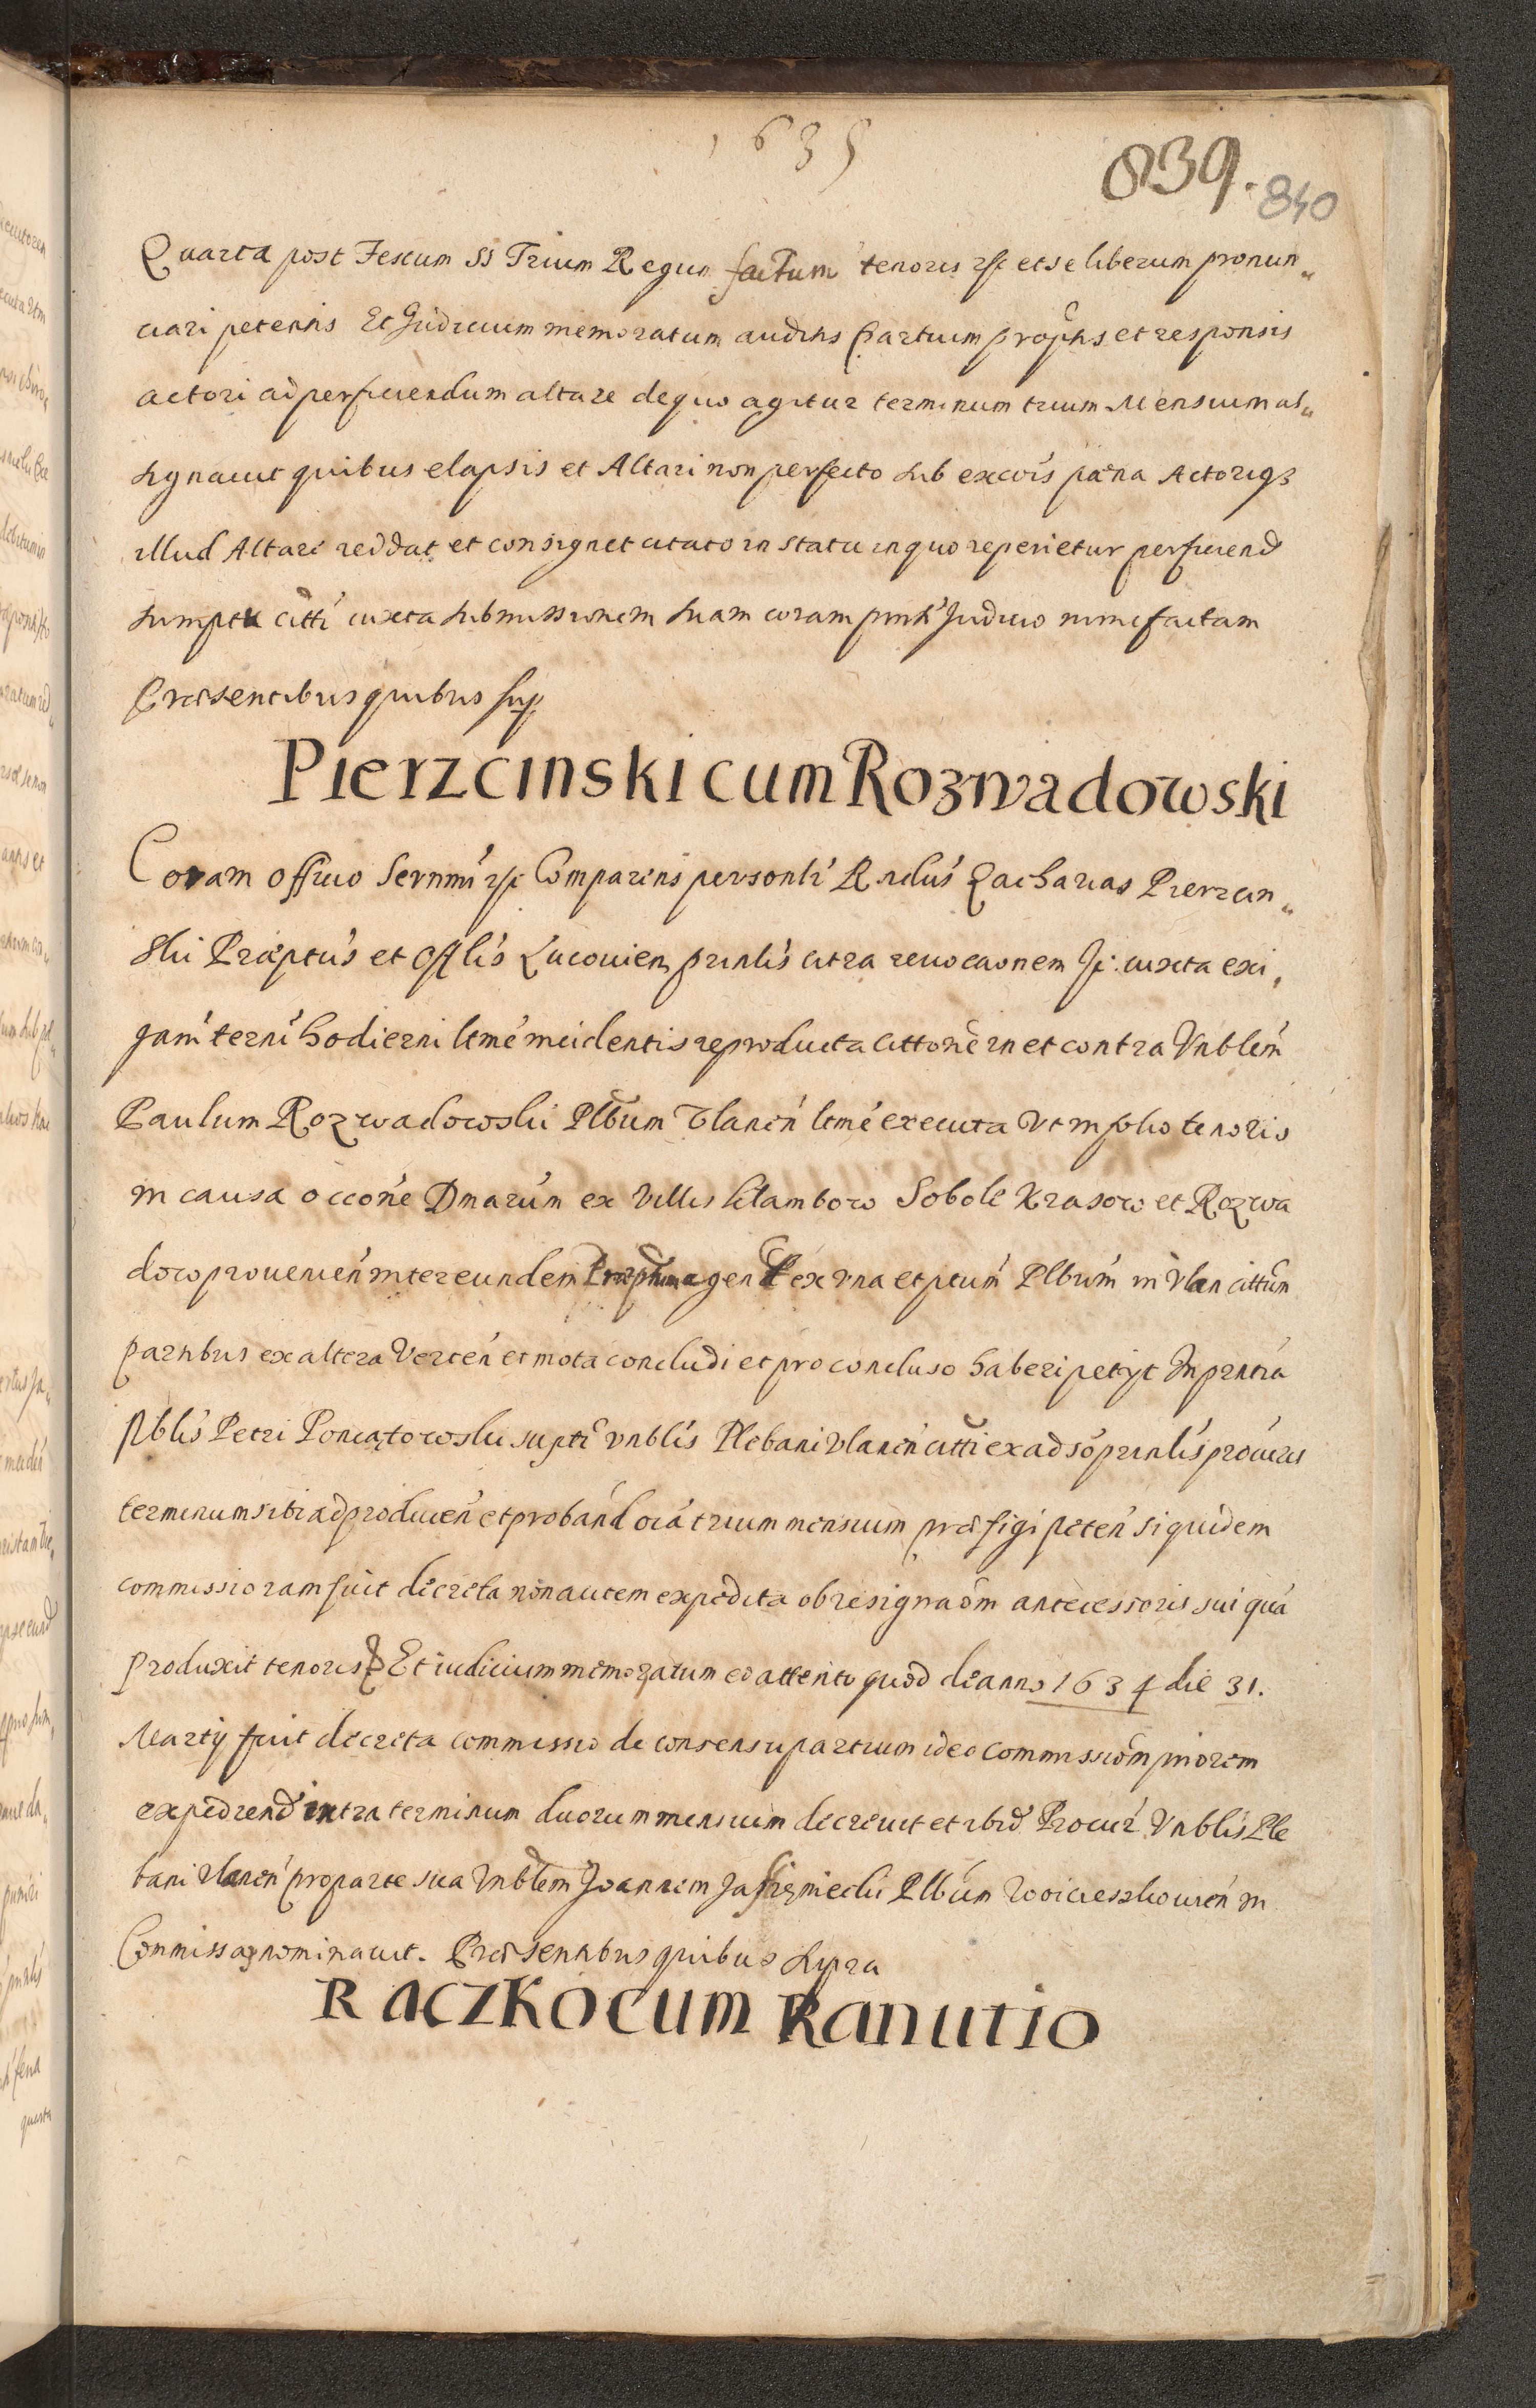 1635
839. 840
Quarta post Festum SS Trium Regum factum tenoris et se liberum pronun„
ciari petentis Et Judicium memoratum auditis partium propõtis et responsis
actori ad perficiendum altare de quo agitur terminum trium Mensium as„
signauit quibus elapsis et Altari non perfecto sub excõis pæna Actorią
illud Altare reddat et consignet citato in statu in quo reperietur perficiend
sumptu citti iuxta submissionem suam coram pnti Judicio nunc factam
Præsentibus quibus sup
Pierzcinski cum Rozwadowski
Coram officio Sernmi Comparens personlr Rndus Zacharias Pierzcin„
ski Præptus et Offlis Lucouien prinlis citra reuocaonem iuxta exi,
gam termi hodierni ltme incidentis reproducta cittone in et contra Vnblem
Paulum Rozwadowski Plbum Vlanen ltme executa Vt in folio tenoris
in causa occone Dmarum ex Villis Klamborow Sobole Krasow et Rozwa
dow prouenien inter eundem agen ex vna et ptum Plbum in Vlan cittum
partibus ex altera Verten et mota concludi et pro concluso haberi petyt In prntia
Nblis Petri Poniątowski supti vnblis Plebani Vlanen citti ex adso prinlis procuris
terminum sibi ad producen et proband oia trium mensium præfigi peten siquidem
commissio iam fuit decreta non autem expedita ob resignaom antecessoris sui qua
produxit tenoris Et iudicium memoratum eo attento quod de anno 1634 die 31.
Marty fuit decreta commissio de consensu partium ideo commissiom priorem
expediend intra terminum duorum mensium decreuit et ibid Procur Vnblis Ple
bani Vlanen pro parte sua Vnblem Joannem Plbum Woicieszkouien in
Commissar nominauit. Præsentibus quibus supra
Raczko cum Kanutio